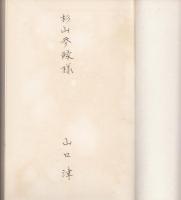 杉山参緑様
山口津